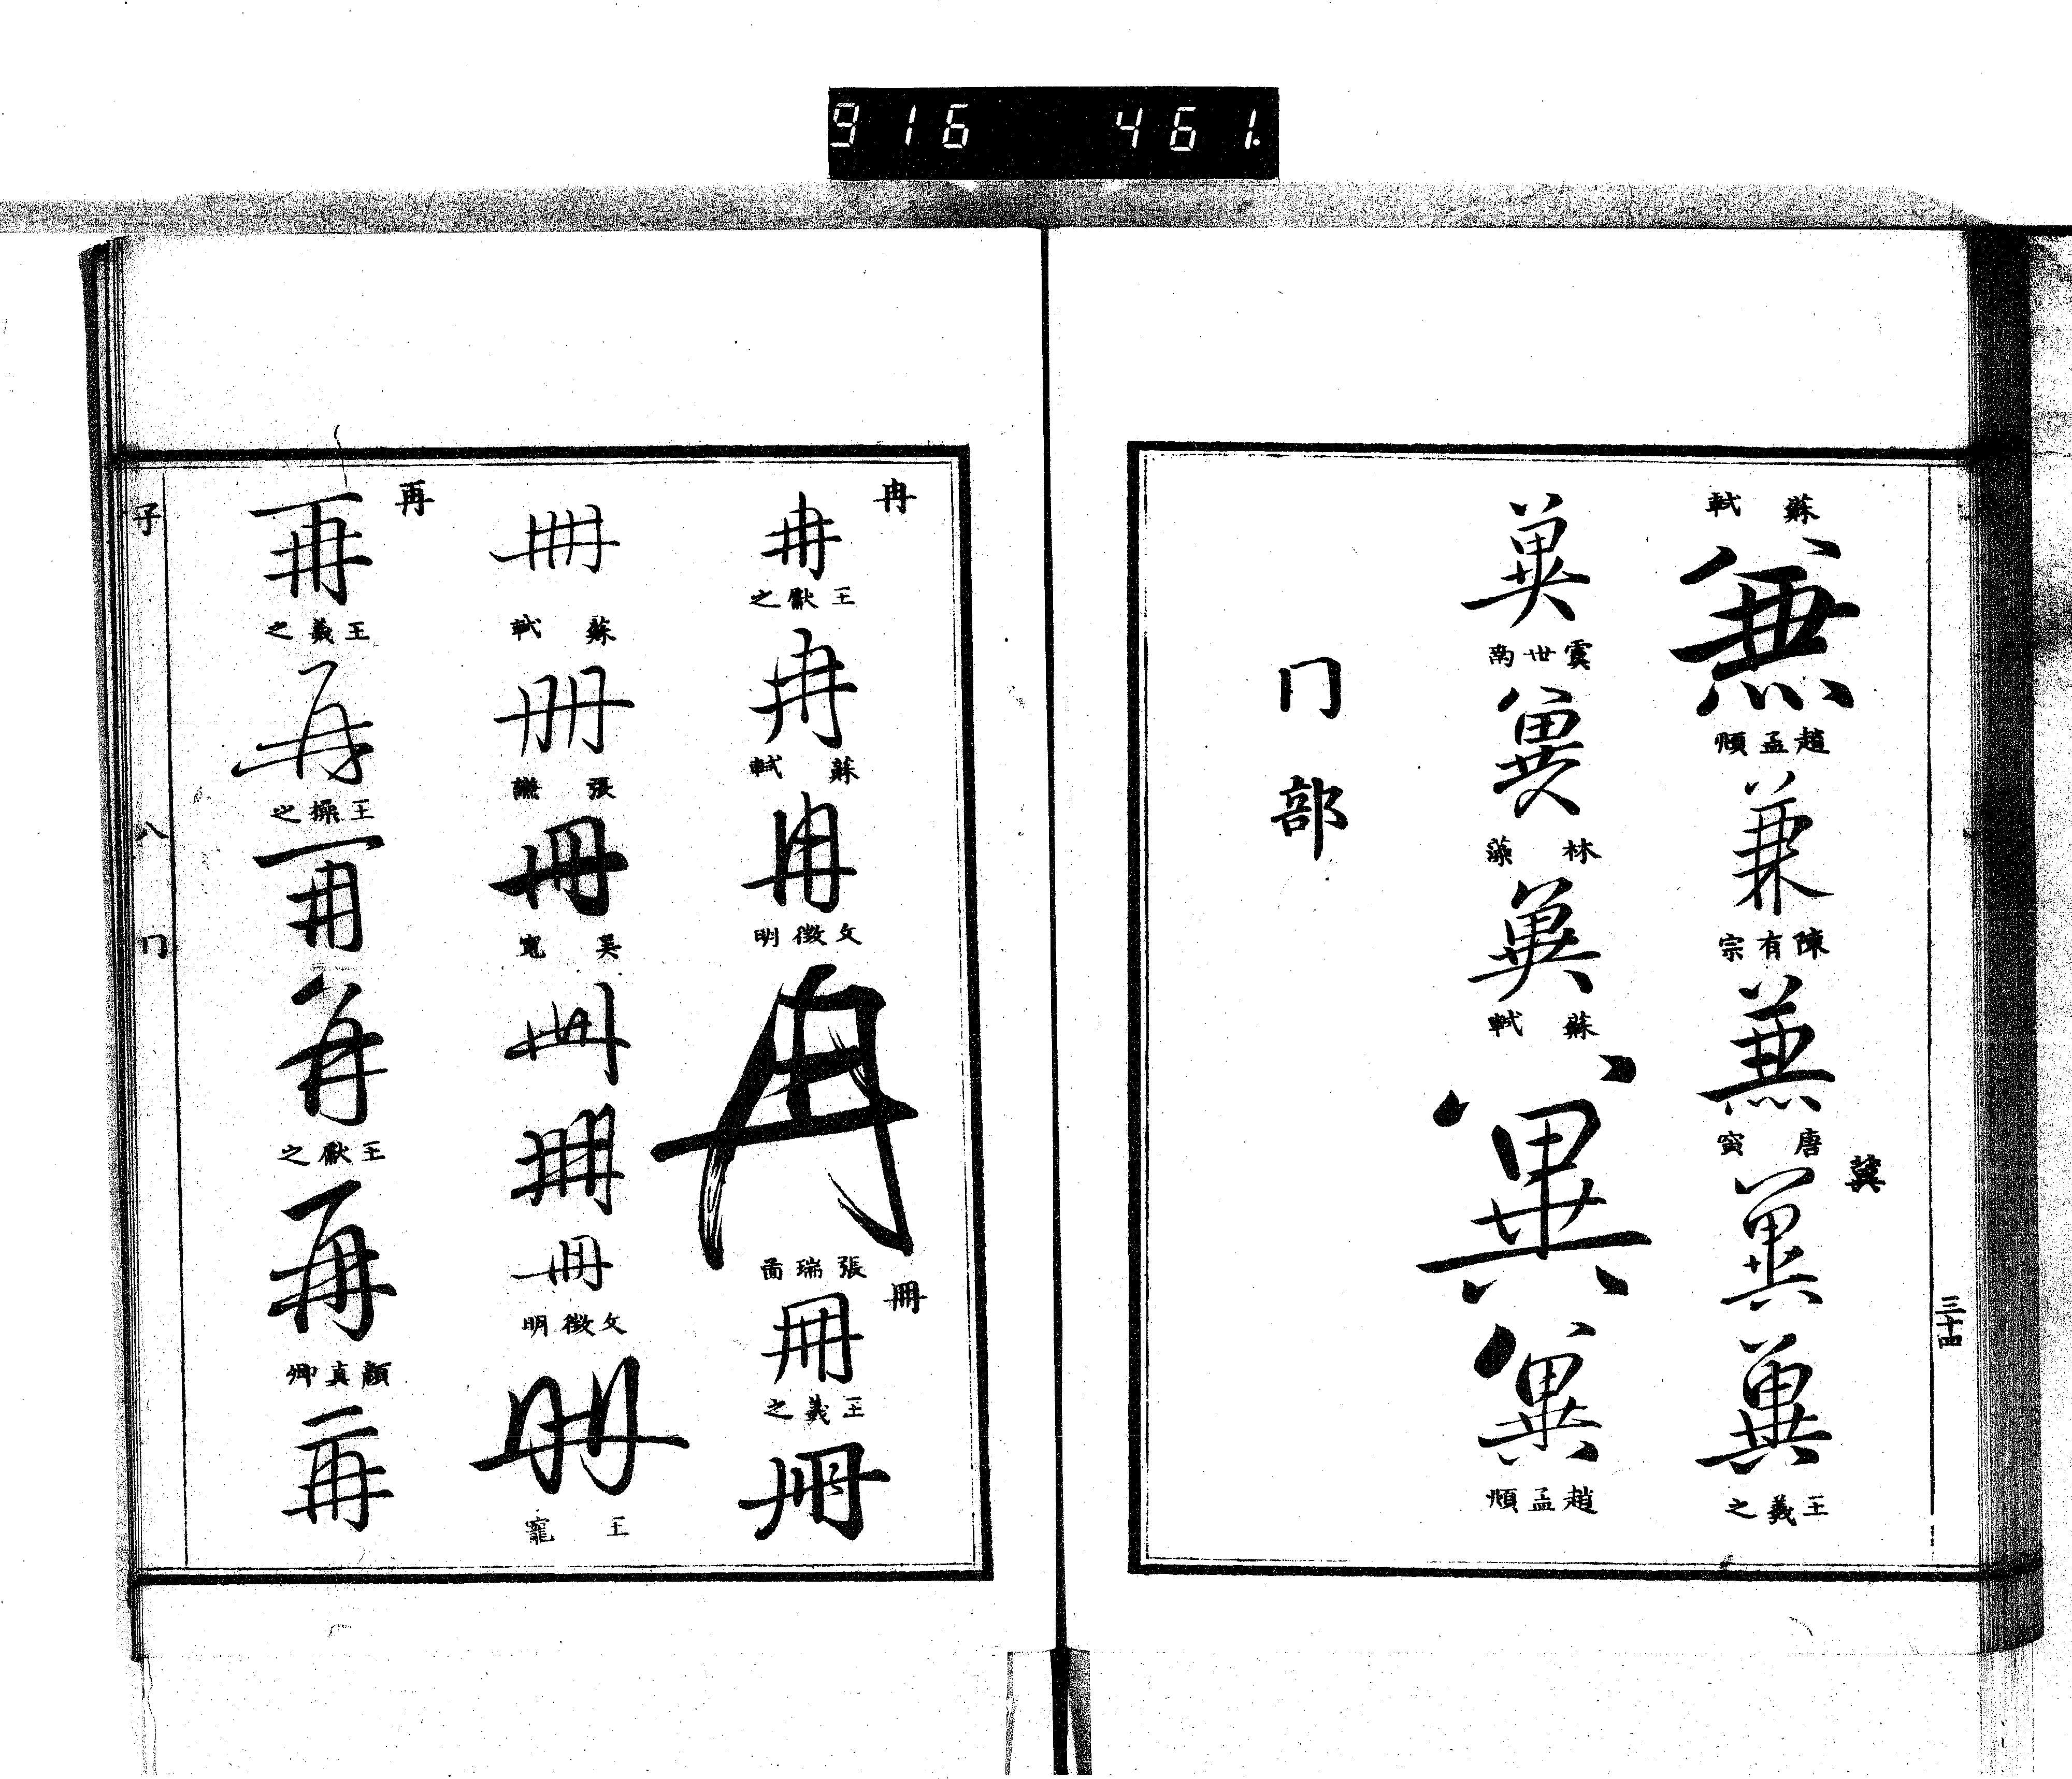 916 461.
蘇軾
兼
趙孟頫
兼
陳有宗
兼
唐寅
冀
冀
冀
王羲之
冀
虞世南
冀
林藻
冀
蘇軾
冀
冀
趙孟頫
冂部
三十四
冉
冉
王獻之
冉
蘇軾
冉
文徵明
冉
張瑞圖
冊
冊
王羲之
冊
冊
蘇軾
冊
張謙
冊
吳寬
冊
冊
冊
文徵明
冊
王寵
再
再
王羲之
再
王操之
再
再
王獻之
再
顏真卿
再
子 八 冂